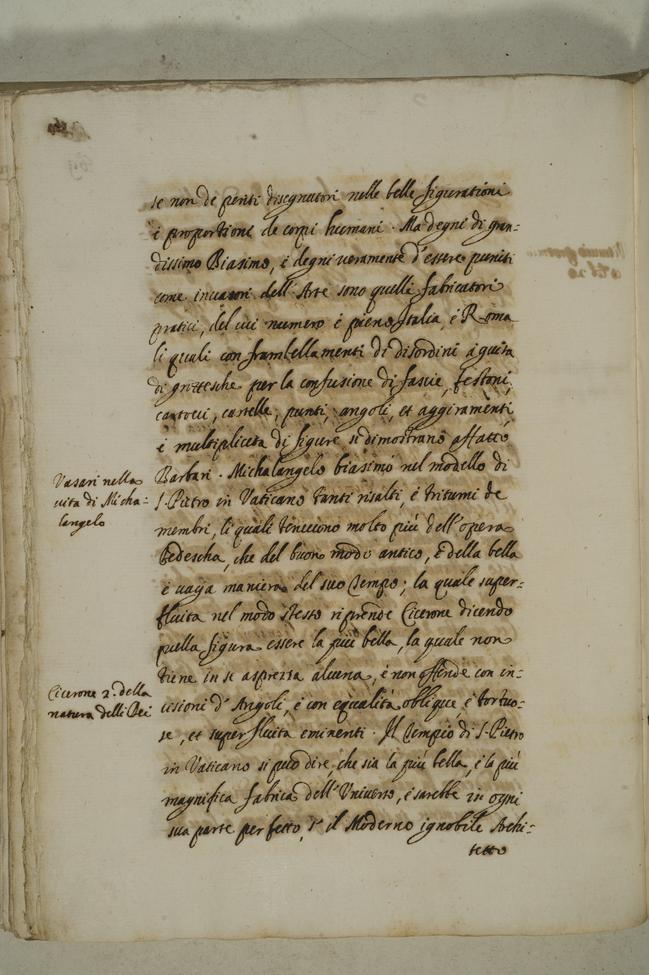 se non de periti disegnatori nelle belle figurationi
è proportioni de corpi humani. Ma degni di gran-
dissimo Biasimo, è degni veramente d'essere puniti
come invasori dell'Arte sono quelli fabricatori
pratici, del cui numero è piena Italia, è Roma
li quali con frastellamenti di disordini à guisa
di grottesche per la confusione di fascie, festoni,
cartocci, cartelle, punti, angoli, et aggiramenti
è multiplicità di figure si dimostrano affatto
Barbari. Michalangelo biasimò nel modello di
Vasari nella
vita di Micha-
langelo
S. Pietro in Vaticano tanti risalti, è tritumi de
membri, li quali tenevono molto più dell'opera
Tedescha, che del buon modo antico, è della bella
è vaga maniera del suo Tempo; la quale super-
fluità nel modo stesso riprende Cicerone dicendo
quella figura essere la più bella, la quale non
tiene in se asprezza alcuna, è non offende con in-
Cicerone 2. della
natura delli Dei
cisioni d'Angoli, è con equalità oblique, è tortuo-
se, et superfluità eminenti. Il Tempio di S. Pietro
in Vaticano si può dire, che sia la più bella, è la più
magnifica fabrica dell'Universo, è sarebbe in ogni
sua parte perfetto, s' il Moderno ignobile Archi-
tetto